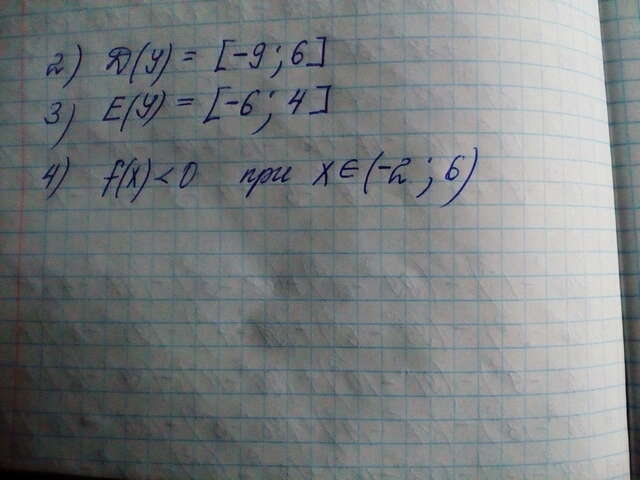 2) D(y) = [-9; 6]
3) E(y) = [-6; 4]
4) f(x) < 0 при x ∈ (-2; 6)